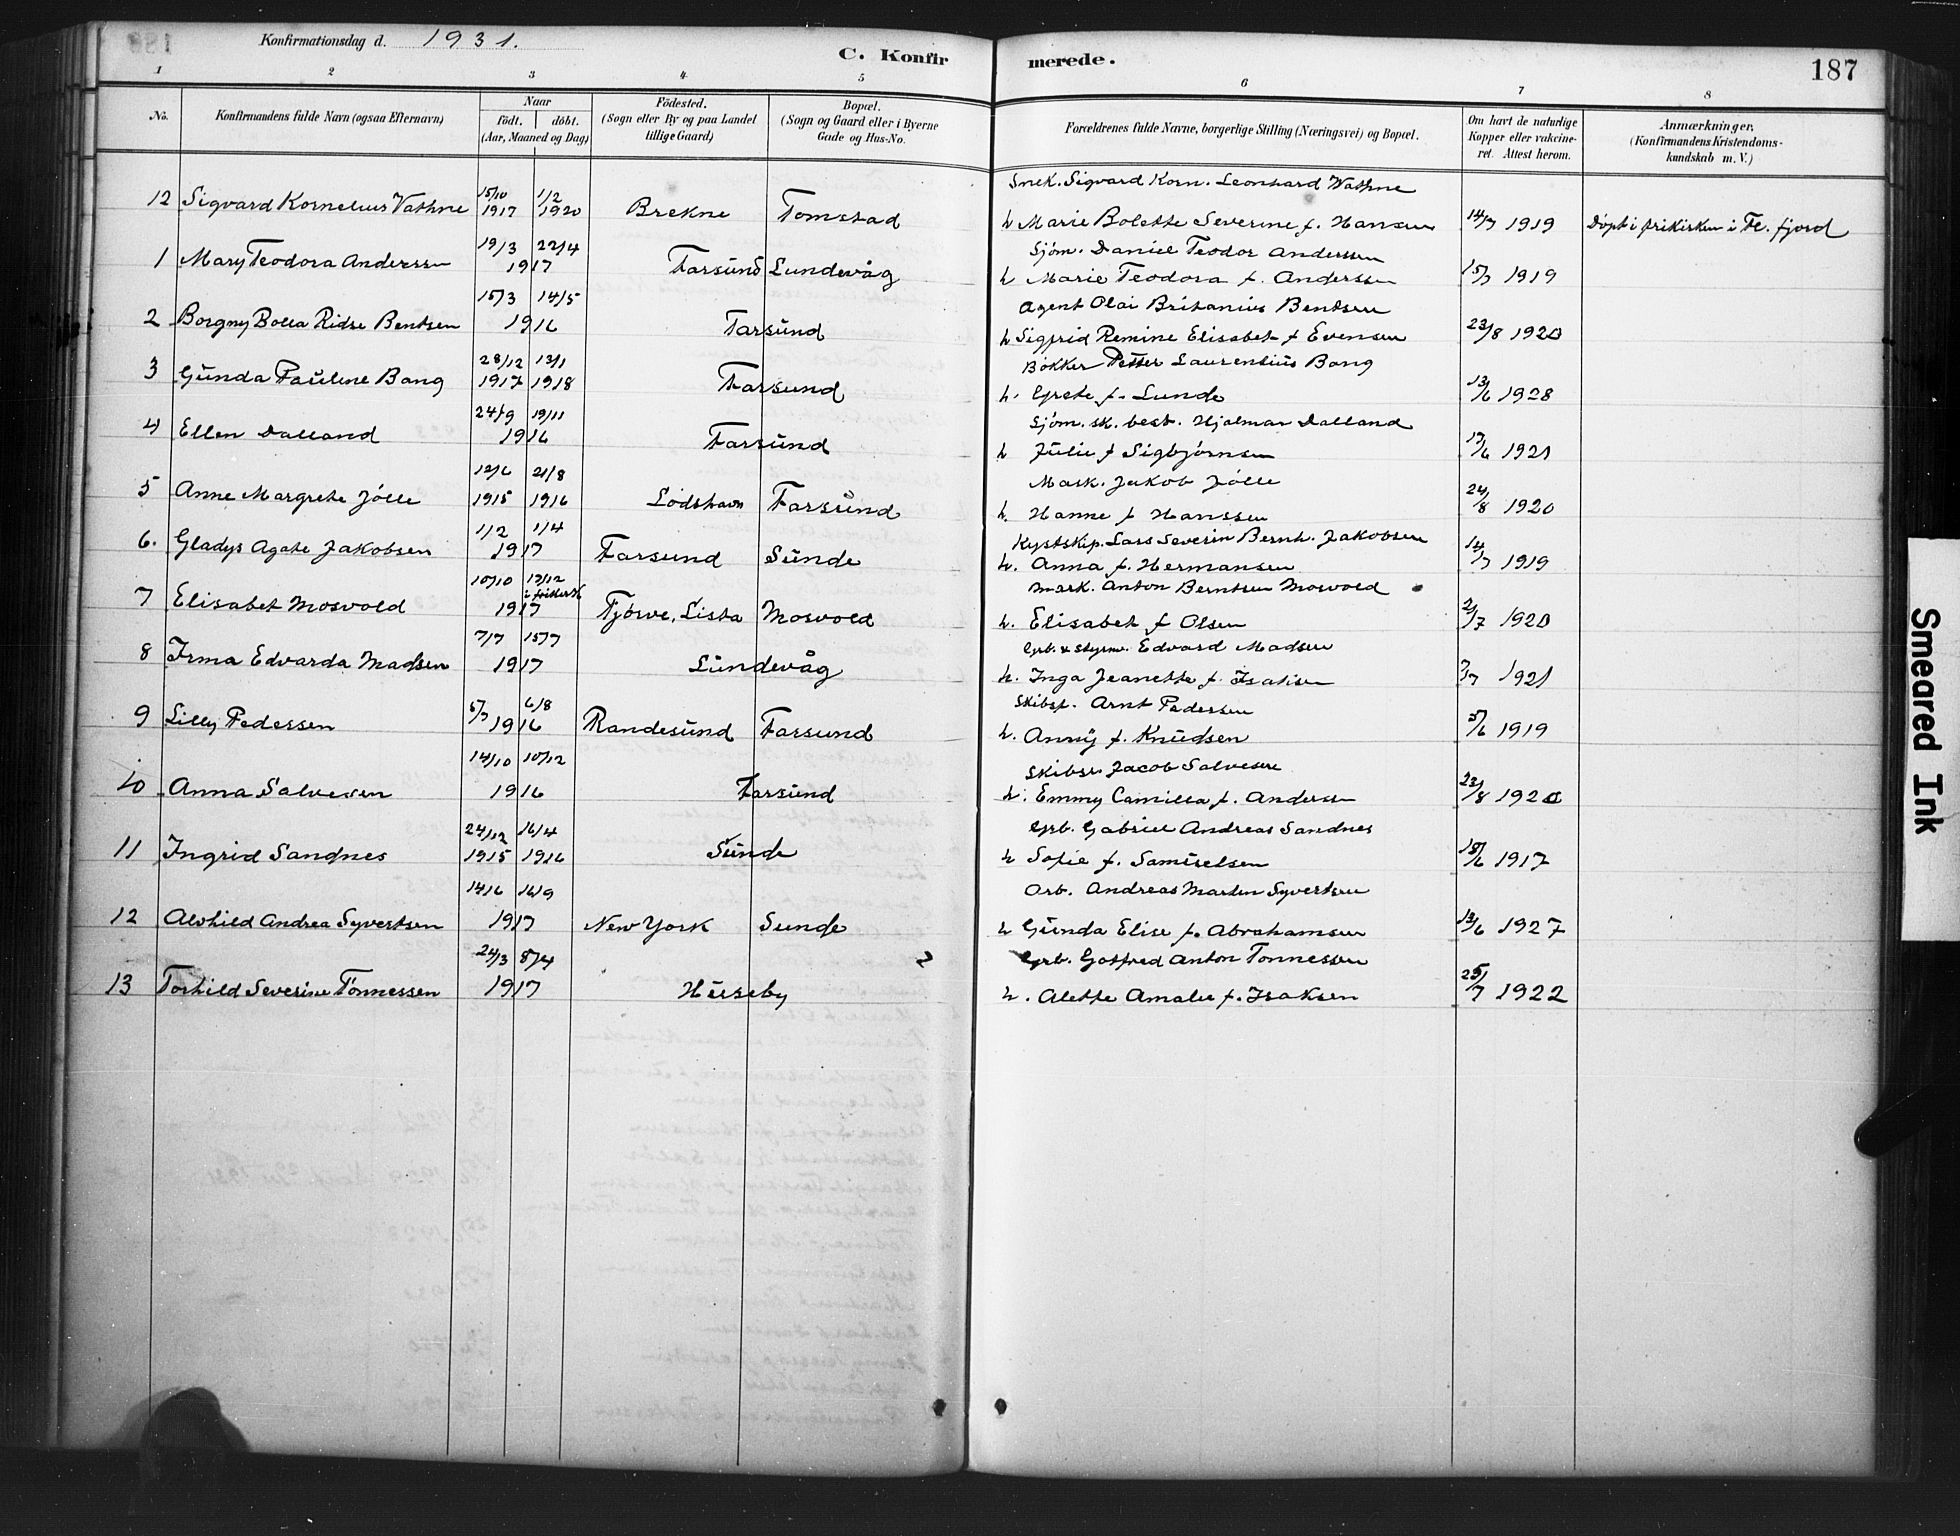 Konfirmationsdag d. 1931.
C. Konfirmerede.
187
1 2 3 4 5 6 7 8
No.
Konfirmandens fulde Navn (ogsaa Efternavn)
Naar
födt. döbt.
(Aar, Maaned og Dag)
Födested.
(Sogn eller By og paa Landet
tillige Gaard)
Bopæl.
(Sogn og Gaard eller i Byerne
Gade og Hus-No.
Forældrenes fulde Navne, borgerlige Stilling (Næringsvei) og Bopæl.
Om havt de naturlige
Kopper eller vakcine-
ret. Attest herom.
Anmærkninger,
(Konfirmandens Kristendoms-
kundskab m. V.)
Snek. Sigvard Korn. Leonhard Vathne
12 Sigvard Kornelius Vathne 15/10 1917 1/2 1920 Brekne Tomstad
h Marie Bolette Severine f. Hansen 14/7 1919 Døpt i frikirken i Fl. fjord
Sjøm. Daniel Teodor Anderssen
1 Mary Teodora Anderssen 19/3 22/4 1917 Farsund Lundevåg
h Marie Teodora f. Anderssen 15/7 1919
Agent Olai Britanius Bentsen
2 Borgny Bolla Ridse Bentsen 15/3 14/5 1916 Farsund
h Sigfrid Remine Elisabet f Evensen 23/8 1920
Bøkker Petter Laurentius Bang
3 Gunda Pauline Bang 28/12 1917 13/1 1918 Farsund
h. Grete f. Lunde 13/6 1928
Sjøm. sk. best. Hjalmar Dalland
4 Ellen Dalland 24/9 19/11 1916 Farsund
h Julie f Sigbjørnsen 17/6 1921
Mask. Jakob Jølle
5 Anne Margrete Jølle 12/6 1915 21/8 1916 Lodshavn Farsund
h. Hanne f Hanssen 24/8 1920
Kystskip. Lars Severin Bernh. Jakobsen
6. Gladys Agate Jakobsen 1/2 1/4 1917 Farsund Sunde
h. Anna f. Hermansen 14/7 1919
Mark. Anton Berntsen Mosvold
7 Elisabet Mosvold 10/10 17/12 1917 Fjørve, Lista Mosvold
h. Elisabet f Olsen 2/7 1920
Grb. & styrm. Edvard Madsen
8 Irma Edvarda Madsen 7/7 15/7 1917 Lundevåg
h. Inga Jeanette f. Isaksen 1921
Skibsf. Arnt Pedersen
9 Lilly Pedersen 5/7 6/8 1916 Randesund Farsund
h. Anny f. Knudsen 1919
Jacob Salvesen
10 Anna Salvesen 14/10 10/12 1916 Farsund
h. Emmy Camilla f. Andersen 23/8 1920
Grb. Gabriel Andreas Sandnes
11 Ingrid Sandnes 24/12 1915 16/4 1916 Sunde
h Sofie f. Samuelsen 18/6 1917
Arb. Andreas Martin Syvertsen
12 Alvhild Andrea Syvertsen 14/6 16/9 1917 New York Sunde
h Gunda Elise f. Abrahamsen 13/6 1927
Grb. Gotfred Anton Tønnessen
13 Torhild Severine Tønnessen 24/3 8/4 1917 Huseby
h. Alette Amalie f. Isaksen 25/7 1922
Smeared Ink